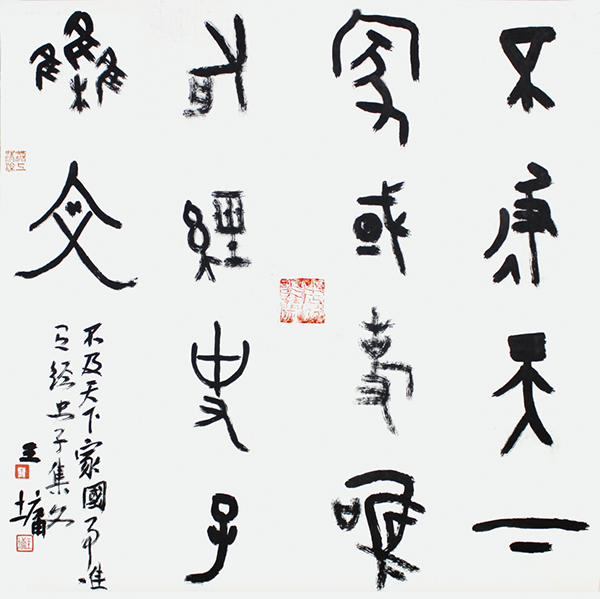 不及天下
家或事唯
有經史子
集文
不及天下家國事唯
有經史子集文
王墉